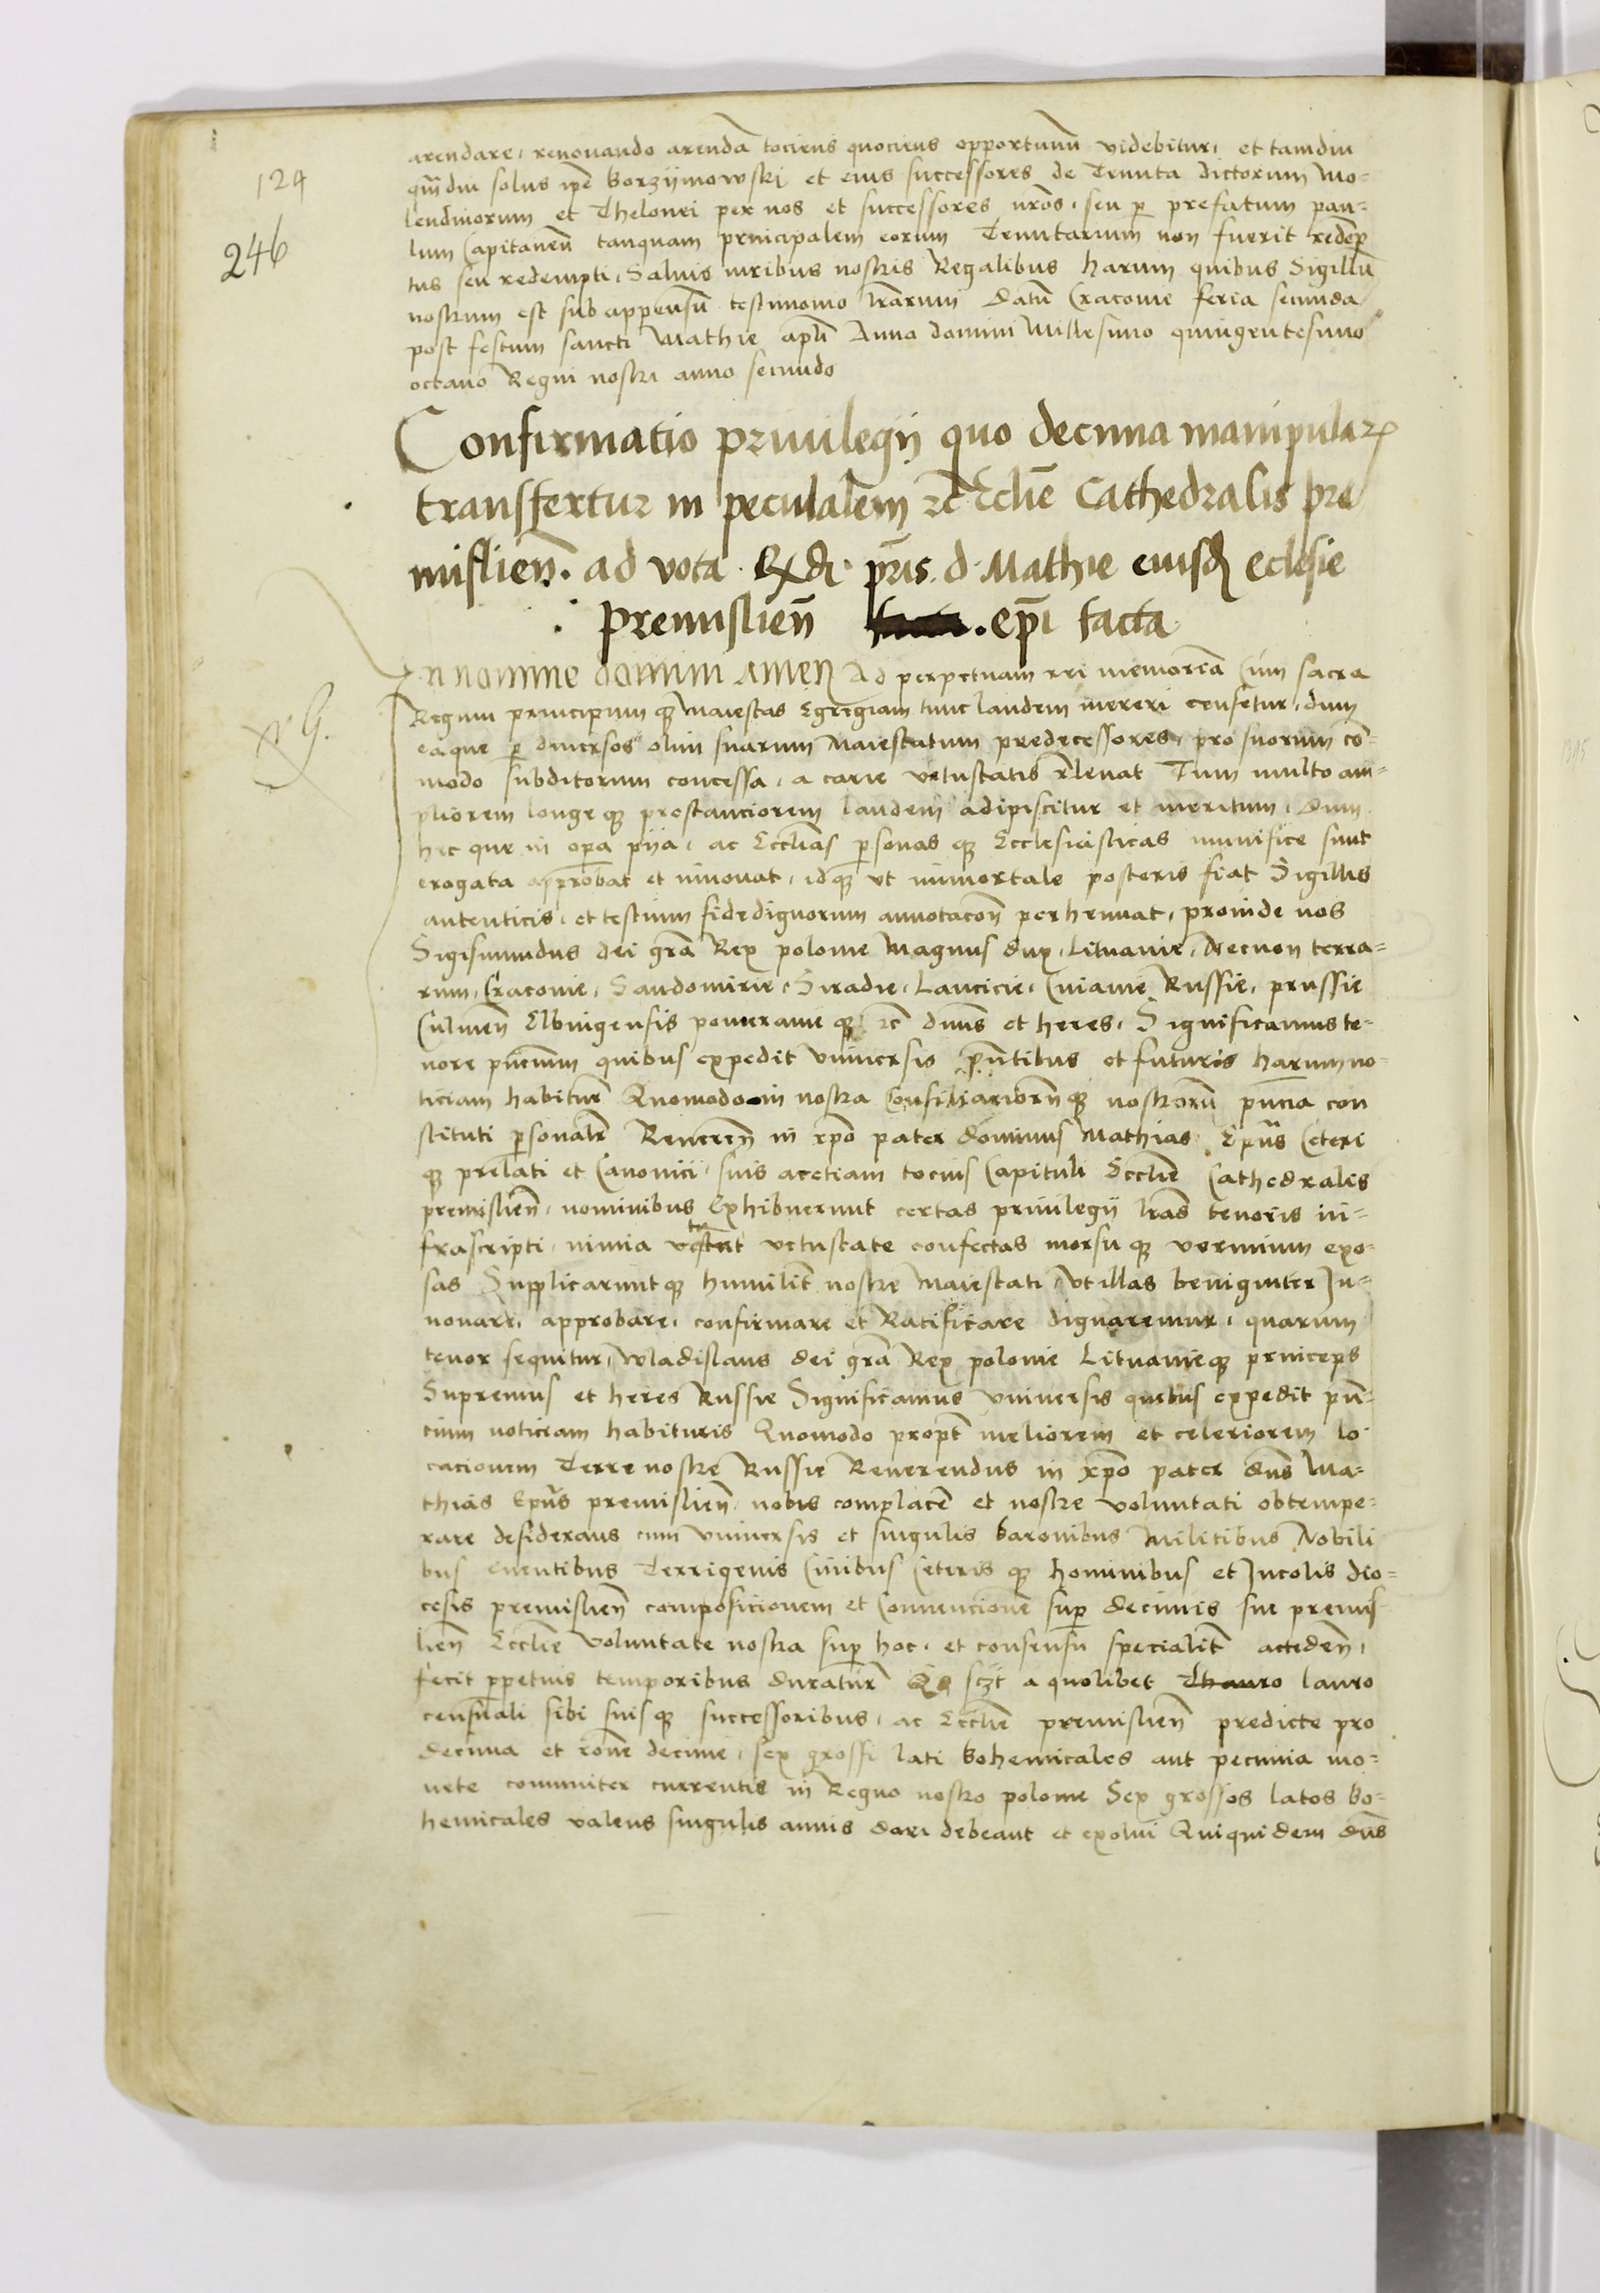 124
246
arendare, renouando arendā tociens quociens opportunū videbitur, et tamdiu
qm̄diu solus ip̄e Gorzijmowski et eius successores de Tenuta dictorum Mo-
lendinorum et Thelonei per nos et successores nr̄os, seu p prefatum pau-
lum Capitaneū tanquam principalem eorum Tenutarium non fuerit redēp
tus seu redempti, Saluis iuribus nostris Regalibus harum quibus Sigillū
nostrum est subappensū testimonio lr̄arum Datū Cracouie feria secunda
post festum sancti Mathie apl̄i Anno domini Millesimo quingentesimo
octauo Regni nostri anno secundo
Confirmatio priuilegij quo decima manipular
transfertur in peculalem rc̄ Eclīe Cathedralis pre
mislien̄. ad vota Rdi p̄ris. d. Mathie eiusd eclesie
premislien̄ . ep̄i facta
In nomine domini amen Ad perpetuam rei memoriā Cum sacra
Regum principum q Maiestas Egregiam tunc laudem mereri censetur, dum
eaque p diuersos olim suarum Maiestatum predecessores, pro suorum cō-
modo subditorum concessa, a carie vetustatis r̄leuat Tum multo am-
pliorem longe q prestanciorem laudem adipiscitur et meritum, dum
hec que in opa pija, ac Eccl̄ias psonas q Ecclesiasticas munifice sunt
erogata approbat et innouat, idq vt immortale posteris fiat Sigillis
autenticis, et testium fidedignorum annotacōn perhennat, proinde nos
Sigismundus dei grā Rex polonie Magnus dux, Lituanie, Necnon terra-
rum, Cracouie, Sandomirie, Siradie, Lancicie, Cuiauie Russie, prussie
Culmen̄ Elbingensis pomeranie q rc̄ dn̄us et heres, Significamus te-
nore pn̄cium quibus expedit vniuersis pn̄tibus et futuris harum no-
ticiam habitur̄ Quomodo in nostra Consiliariorū q nostrorū pn̄cia con
stituti psonalr̄ Reueren̄ in xp̄o pater dominus Mathias Ep̄us Ceteri
q prelati et Canonici, suis ac etiam tocius Capituli Eccl̄ie Cathedralis
premislien̄, nominibus Exhibuerunt certas priuilegij lr̄as tenoris in-
frascripti, nimia vetustate confectas morsu q vermium exo-
sas Supplicaruntq humilit̄ nostre Maiestati vt illas benigniter In-
nouare, approbare, confirmare et Ratificare dignaremur, quarum
tenor sequitur, Wladislaus dei grā Rex polonie Lituanieq princeps
Supremus et heres Russie Significamus vniuersis quibus expedit pn̄-
cium noticiam habituris Quomodo propt̄ meliorem et celeriorem lo-
cacionem Terre nostre Russie Reuerendus in xp̄o pater dn̄s Ma-
thias Ep̄us premislien̄, nobis complacē et nostre voluntati obtempe-
rare desiderans cum vniuersis et singulis baronibus Militibus Nobili
bus Terrigenis Ciuibus Ceteris q hominibus et Incolis dio-
cesis premislien̄ composicionem et Conuencionē sup decimis sue premis-
lien̄ Eccl̄ie voluntate nostra sup hoc, et consensu specialit̄ acceden̄,
fecit ppetuis temporibus duratur̄ Qd sczt a quolibet Thauro lauro
censuali sibi suis q successoribus, ac Eccl̄ie premislien̄ predicte pro
decima et rōne decime, sex grossi lati bohemicales aut pecunia mo-
nete communiter currentis in Regno nostro polonie Sex grossos latos bo-
hemicales valens singulis annis dari debeant et exolui Quiquidem dn̄s